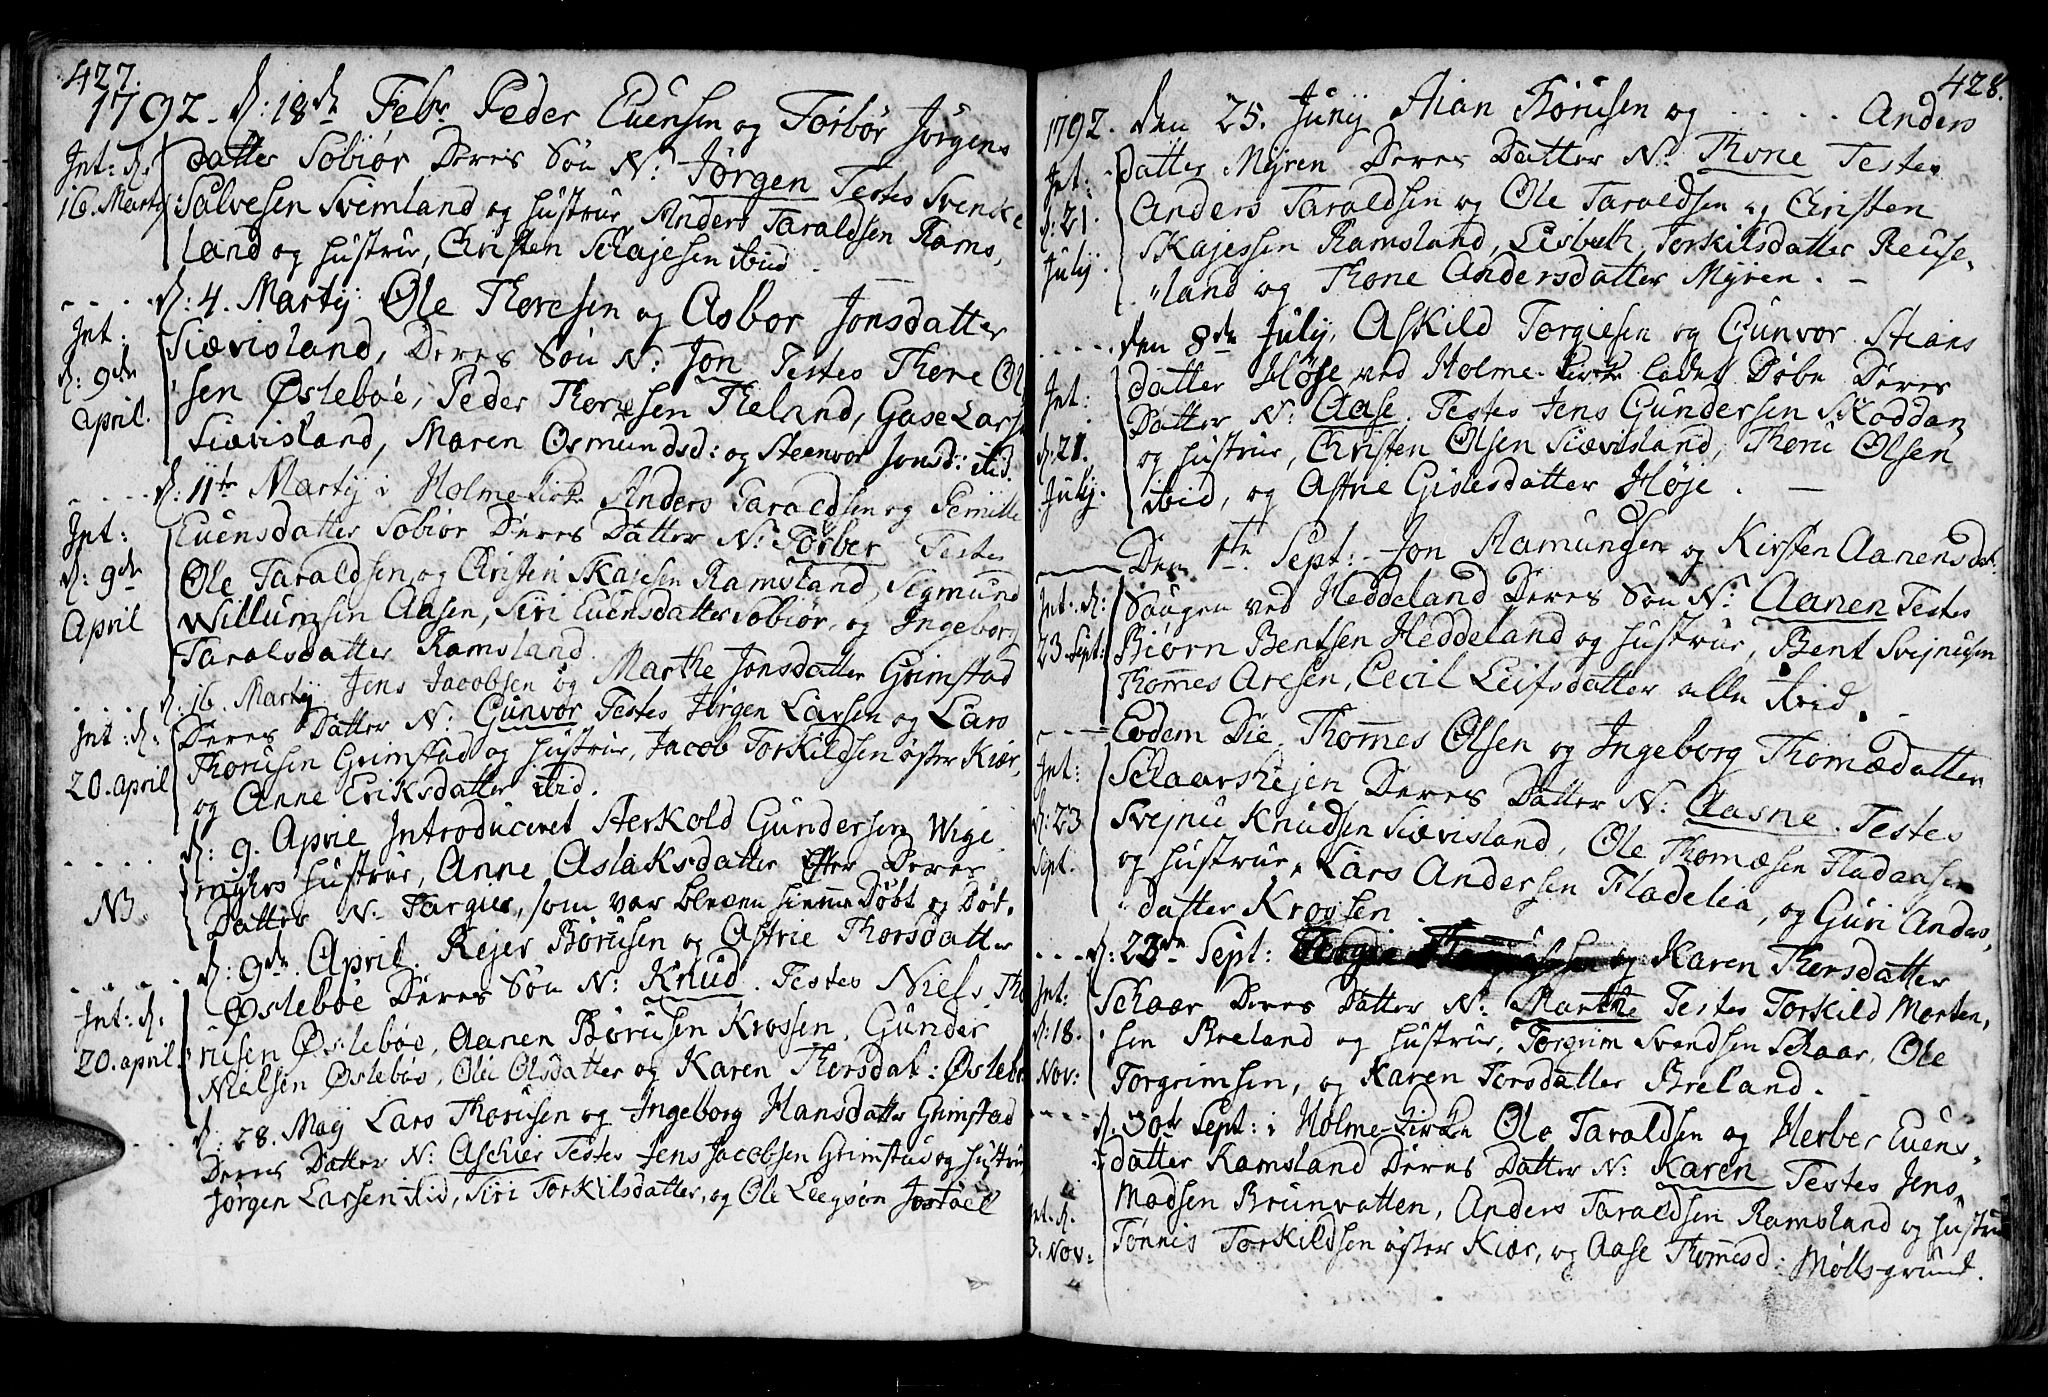 427.
1792. d: 18de Febr Peder Euensen og Torbør Jørgens
Int: d. datter Sobiør Deres Søn N: Jørgen Testes Svenke
16. Marty Salvesen Svimland og hustrue, Anders Taraldsen Rams,
land og hustrue, Christen Schajesen ibid.
d: 4. Marty: Ole Thoresen og Asbor Jonsdatter
Int: Siævisland, Deres Søn N: Jon Testes Thore Ol
d: 9de sen Øslebøe, Peder Thoresen Theland, Gase Lars
April. Siævisland, Maren Osmundsd: og Steenvor Jonsd: ibid.
d: 11te Marty i Holme-Kirke Anders Taraldsen og Pernille
Int: Euensdatter Sobiør Deres Datter N: Torber Testes
d: 9de Ole Taraldsen og Christen Skajesen Ramsland, Segmund
April Willumsen Aasen, Siri Euensdatter Sobiør, og Ingeborg
Taralsdatter Ramsland.
d. 16. Marty Jens Jacobsen og Marthe Jonsdatter Grimstad
Int: d. Deres Datter N: Gunvor Testes Jørgen Larsen og Lars
20. april Thorusen Grimstad og hustrue, Jacob Torkildsen øster Kiær,
og Anne Eriksdatter ibid.
d: 9. Aprie Introduceret Sterkold Gundersen Wige
NB. myhrs hustrue, Anne Aslaksdatter Efter Deres
Datter N: Targier, som var bleven hiemme Døbt og Død.
d: 9de April. Rejer Børusen og Astrie Thorsdatter
Int: d. Øslebøe Deres Søn N: Knud. Testes Niels Tho
20. april. rusen Øslebøe, Aanen Børusen Krossen, Gunder
Nielsen Øslebøe, Olei Olsdatter og Karen Thorsdat: Øslebø
d: 28. May Lars Thorusen og Ingeborg Hansdatter Grimstad
Deres Datter N: Aschier Testes Jens Jacobsen Grimstad og hustru
Jørgen Larsen ibid, Siri Torkilsdatter, og Ole Leegsøn Jostøel
428.
1792. den 25. Juny Stian Børusen og . . . . Anders
Int: datter Myren Deres Datter N: Thone Testes
d: 21. Anders Taraldsen og Ole Taraldsen og Christen
July. Skajessen Ramsland, Lisbeth Torkilsdatter Reuse,
land og Thone Andersdatter Myren.
den 8de July, Askild Torgiesen og Gunvor Stians
Int: datter Høje ved Holme-Kirke ladet Døbe Deres
d: 21. Datter N: Aase. Testes Jens Gundersen Skoddan
July. og hustrue, Christen Olsen Siævisland, Thoru Olsen
ibid, og Astrie Gislesdatter Høje.
Den 1te Sept: Jon Ramundsen og Kirsten Aanensdat:
Int: d: Saugen ved Heddeland Deres Søn N: Aanen Testes
23 Sept: Biørn Bentsen Heddeland og hustrue, Bent Svejnusen
Thomes Aresen, Cecil Leifsdatter alle ibid.
Eodem Die, Thomes Olsen og Ingeborg Thomædatter
Int: Schaarshejen Deres Datter N: Aasne. Testes
d: 23 Svejnu Knudsen Siævisland, Ole Thomæsen Fladaasen
Sept. og hustrue, Lars Andersen Fladelia, og Guri Anders,
datter Krossen.
d: 23de Sept: og Karen Thorsdatter
Int: Schaar Deres Datter N: Marthe Testes Torkild Morten,
d: 18. sen Breland og hustrue, Torgrim Svendsen Schaar, Ole
Nov: Torgrimsen, og Karen Torsdatter Breland.
d. 30te Sept: i Holme-Kirke Ole Taraldsen og Herber Euens,
datter Ramsland Deres Datter N: Karen Testes Jens
Int. d. Madsen Brunvatten, Anders Taraldsen Ramsland og hustru
3. Nov: Tønnis Torkildsen øster Kiær, og Aase Thomesd: Møllsgrund.